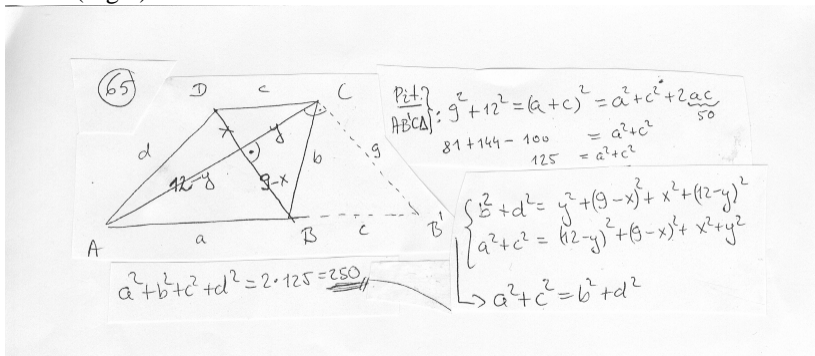 65
D c C
x y
d b 9
12-y 9-x
A a B c B'
Pit.?
AB'CΔ: 9² + 12² = (a+c)² = a² + c² + 2ac
50
81 + 144 - 100 = a² + c²
125 = a² + c²
b² + d² = y² + (9-x)² + x² + (12-y)²
a² + c² = (12-y)² + (9-x)² + x² + y²
↳ a² + c² = b² + d²
a² + b² + c² + d² = 2·125 = 250